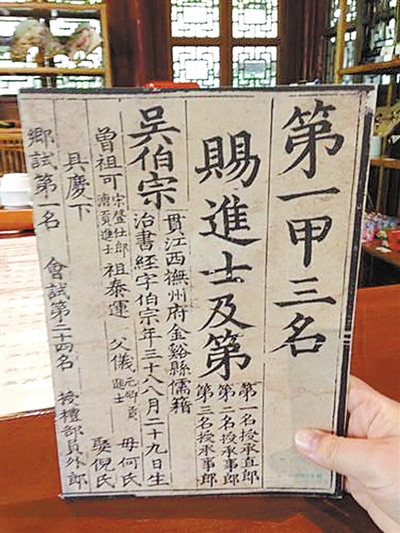 第一甲三名
賜進士及第
第一名授承直郎
第二名授承事郎
第三名授承事郎
吳伯宗
貫江西撫州府金谿縣儒籍
治書經字伯宗年三十八八月二十九日生
曾祖可 宋登仕郎 漕貢進士 祖泰運 父儀 元鄉貢進士 母何氏
具慶下 娶倪氏
鄉試第一名 會試第二十四名 授禮部員外郎